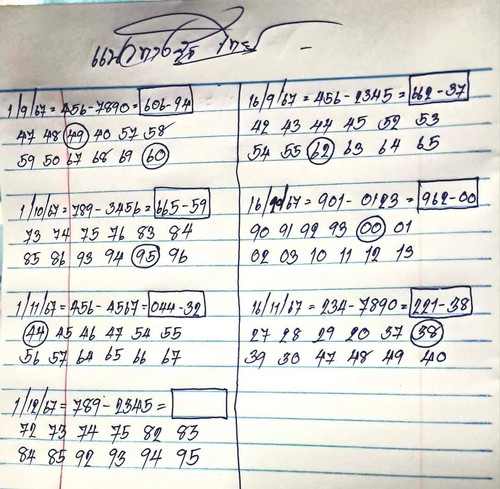 แนวทาง
1/9/67 = 456 - 7890 = 606-94
47 48 49 40 57 58
59 50 67 68 69 60
16/9/67 = 456 - 2345 = 662-37
42 43 44 45 52 53
54 55 62 63 64 65
1/10/67 = 789 - 3456 = 665-59
73 74 75 76 83 84
85 86 93 94 95 96
16/10/67 = 901 - 0123 = 962-00
90 91 92 93 00 01
02 03 10 11 12 13
1/11/67 = 456 - 4567 = 044-32
44 45 46 47 54 55
56 57 64 65 66 67
16/11/67 = 234 - 7890 = 221-38
27 28 29 20 37 38
39 30 47 48 49 40
1/12/67 = 789 - 2345 =
72 73 74 75 82 83
84 85 92 93 94 95